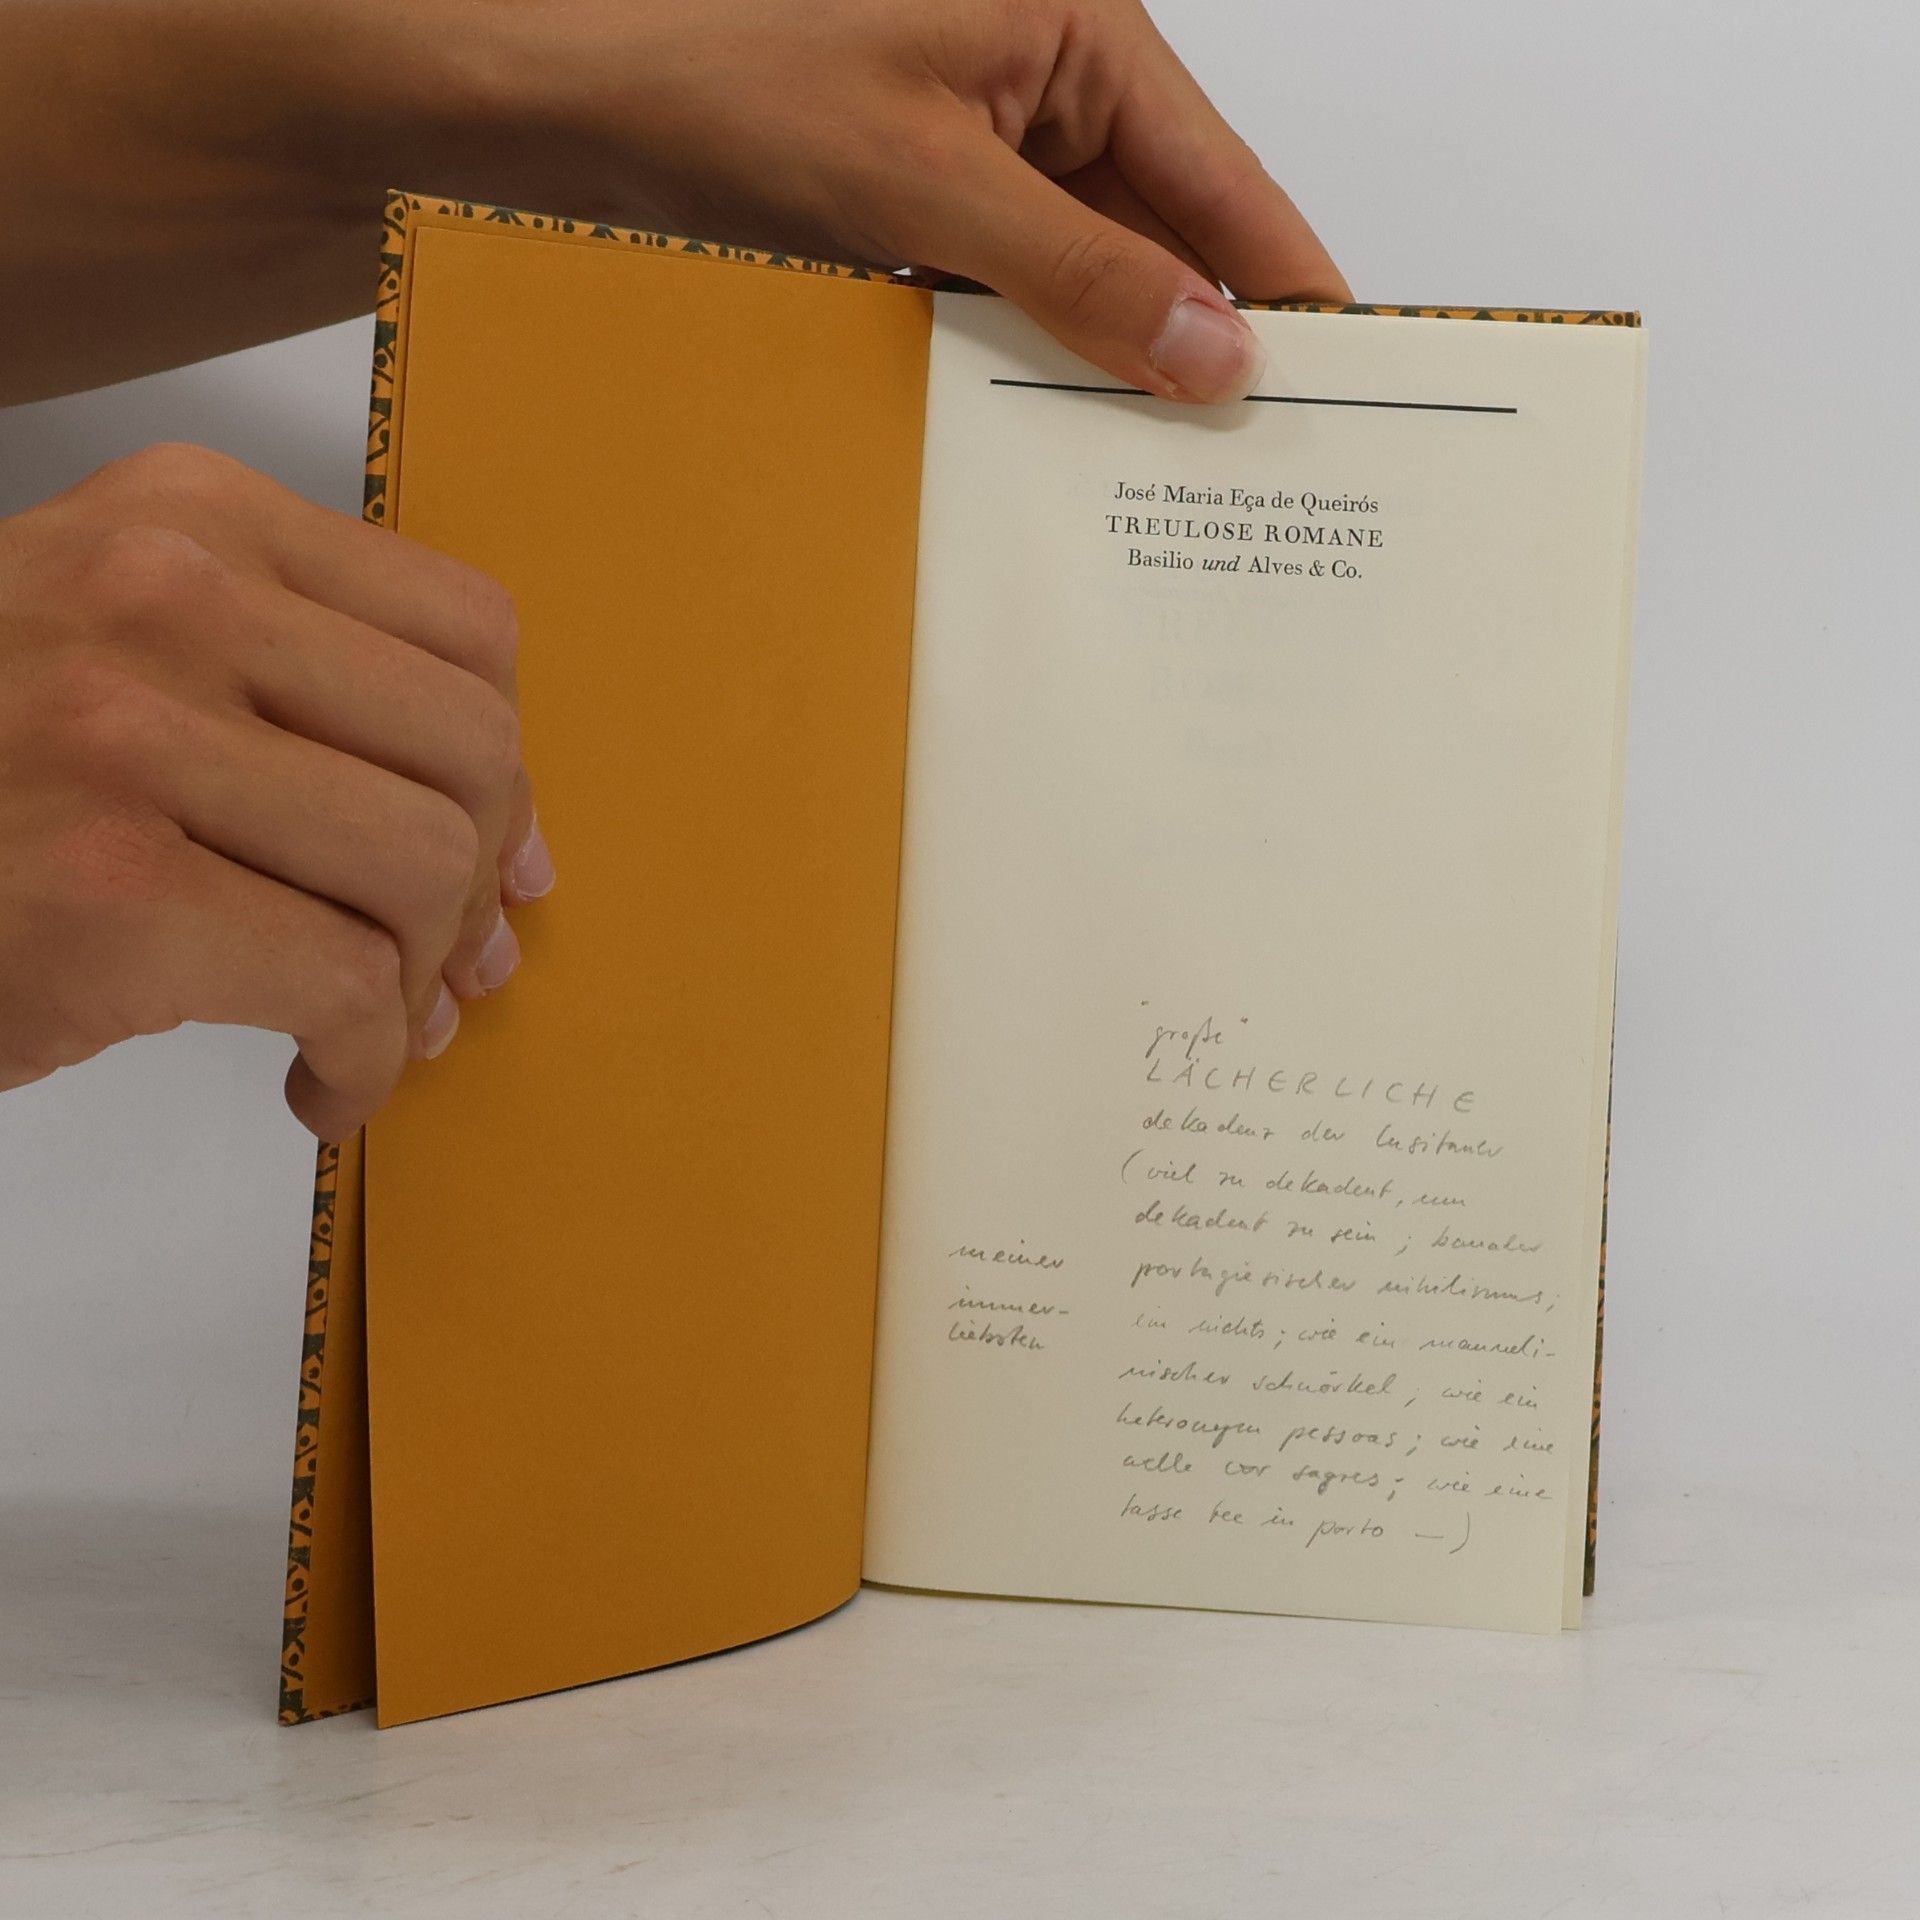 José Maria Eça de Queirós
TREULOSE ROMANE
Basilio und Alves & Co.
"große"
LÄCHERLICHE
dekadenz der lusitaner
(viel zu dekadent, um
dekadent zu sein; banaler
portugiesischer nihilismus;
ein nichts; wie ein manueli-
nischer schnörkel; wie ein
heteronym pessoas; wie eine
welle vor sagres; wie eine
tasse tee in porto —)
meiner
immer-
liebsten